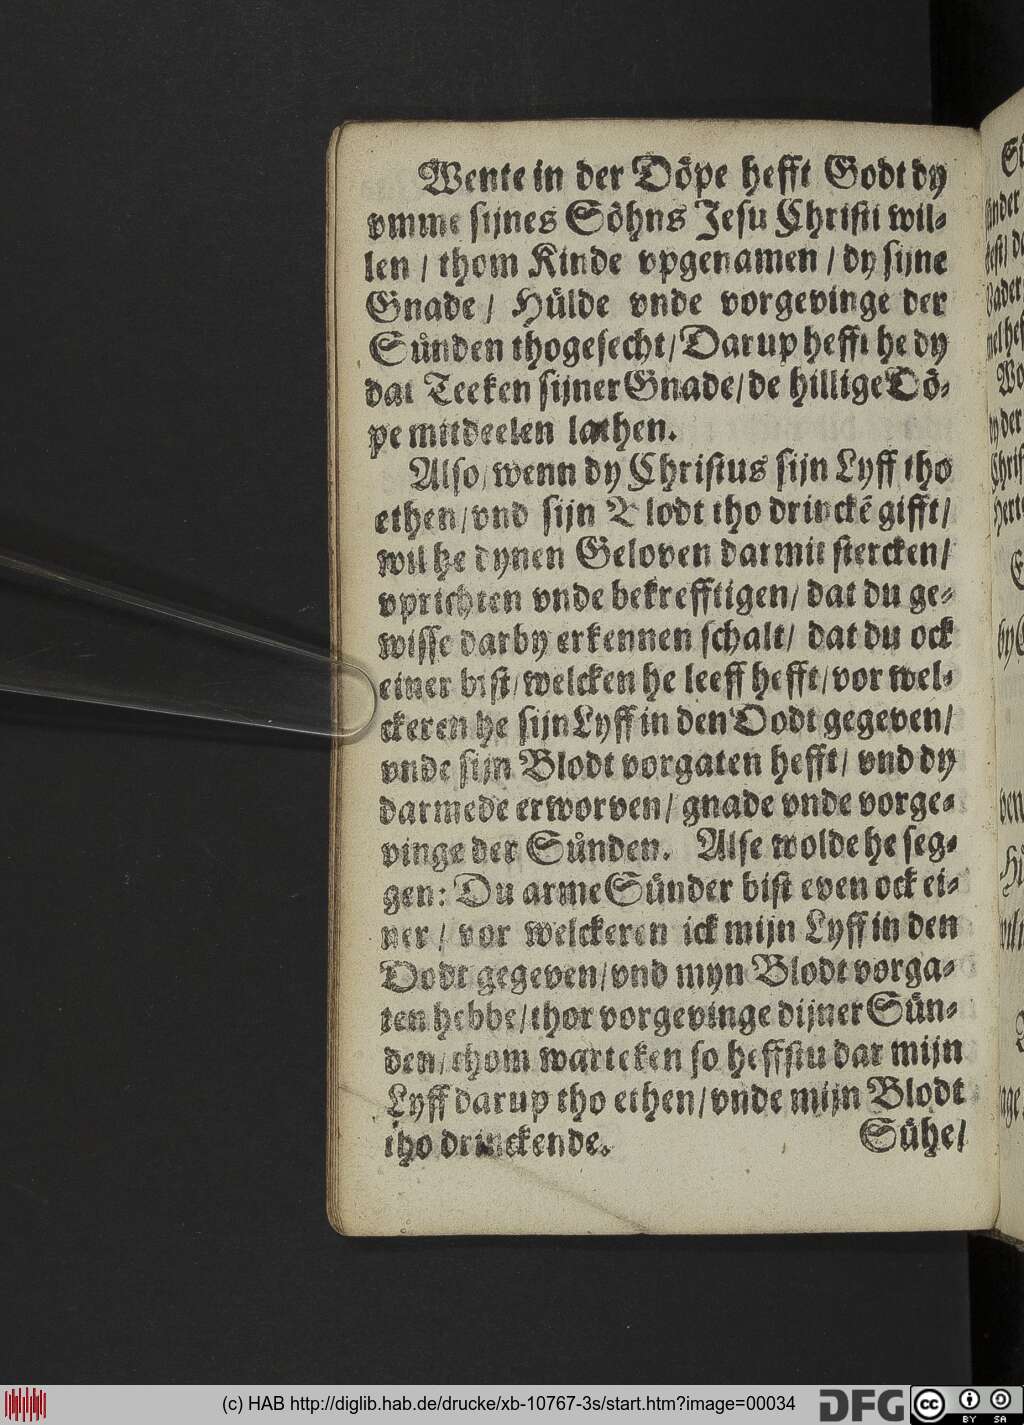 Wente in der Döpe hefft Godt dy
vmme sijnes Söhns Jesu Christi wil-
len / thom Kinde vpgenamen / dy sijne
Gnade / Hülde vnde vorgevinge der
Sünden thogesecht / Darup hefft he dy
dat Teeken sijner Gnade / de hillige Dö-
pe mitdeelen lathen.
Also / wenn dy Christus sijn Lyff tho
ethen / vnd sijn Blodt tho drinckē gifft /
wil he dynen Geloven darmit stercken /
vprichten vnde bekrefftigen / dat du ge-
wisse darby erkennen schalt / dat du ock
einer bist / welcken he leeff hefft / vor wel-
ckeren he sijn Lyff in den Dodt gegeven /
vnde sijn Blodt vorgaten hefft / vnd dy
darmede erworven / gnade vnde vorge-
vinge der Sünden. Alse wolde he seg-
gen: Du arme Sünder bist even ock ei-
ner / vor welckeren ick mijn Lyff in den
Dodt gegeven / vnd myn Blodt vorga-
ten hebbe / thor vorgevinge dijner Sün-
den / thom warteken so heffstu dar mijn
Lyff darup tho ethen / vnde mijn Blodt
tho drinckende.
Sühe /
(c) HAB http://diglib.hab.de/drucke/xb-10767-3s/start.htm?image=00034
DFG
cc
BY SA